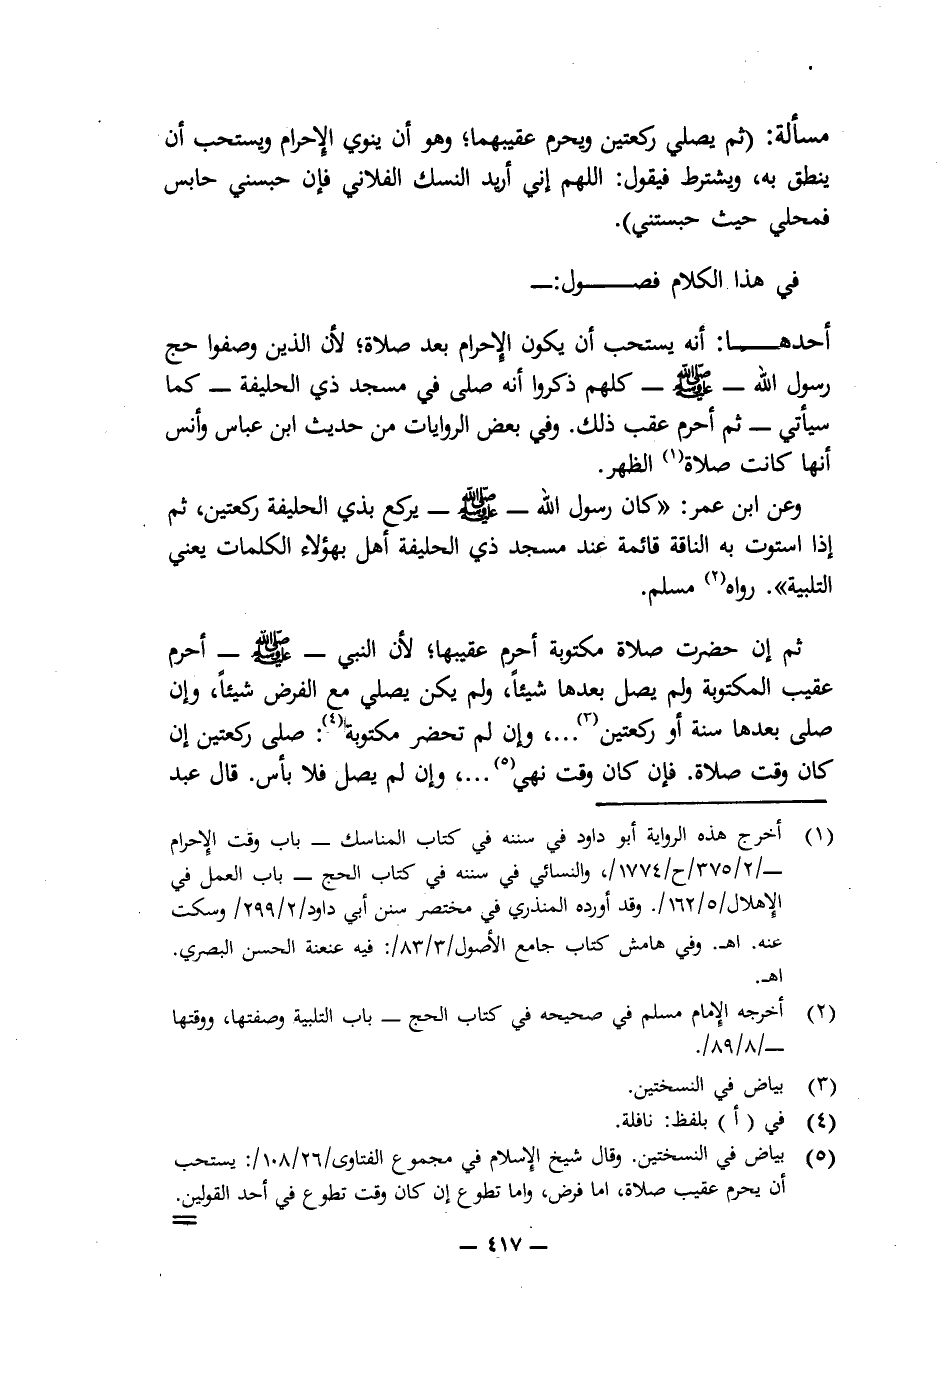 مسألة: (ثم يصلي ركعتين ويحرم عقيبهما؛ وهو أن ينوي الإحرام ويستحب أن
ينطق به، ويشترط فيقول: اللهم إني أريد النسك الفلاني فإن حبسني حابس
فمحلي حيث حبستني).
في هذا الكلام فصـــــول:ـــ
أحدهـــــا: أنه يستحب أن يكون الإحرام بعد صلاة؛ لأن الذين وصفوا حج
رسول الله ـــ ﷺ ـــ كلهم ذكروا أنه صلى في مسجد ذي الحليفة ـــ كما
سيأتي ـــ ثم أحرم عقب ذلك. وفي بعض الروايات من حديث ابن عباس وأنس
أنها كانت صلاة(١) الظهر.
وعن ابن عمر: «كان رسول الله ـــ ﷺ ـــ يركع بذي الحليفة ركعتين، ثم
إذا استوت به الناقة قائمة عند مسجد ذي الحليفة أهل بهؤلاء الكلمات يعني
التلبية». رواه(٢) مسلم.
ثم إن حضرت صلاة مكتوبة أحرم عقيبها؛ لأن النبي ـــ ﷺ ـــ أحرم
عقيب المكتوبة ولم يصل بعدها شيئاً، ولم يكن يصلي مع الفرض شيئاً، وإن
صلى بعدها سنة أو ركعتين(٣)...، وإن لم تحضر مكتوبة(٤): صلى ركعتين إن
كان وقت صلاة. فإن كان وقت نهي(٥)...، وإن لم يصل فلا بأس. قال عبد
(١) أخرج هذه الرواية أبو داود في سننه في كتاب المناسك ـــ باب وقت الإحرام
ـــ/٣٧٥/٢/ح/١٧٧٤/، والنسائي في سننه في كتاب الحج ـــ باب العمل في
الإهلال/١٦٢/٥/. وقد أورده المنذري في مختصر سنن أبي داود/٢٩٩/٢/ وسكت
عنه. اهـ. وفي هامش كتاب جامع الأصول/٨٣/٣/: فيه عنعنة الحسن البصري.
اهـ.
(٢) أخرجه الإمام مسلم في صحيحه في كتاب الحج ـــ باب التلبية وصفتها، ووقتها
ـــ/٨٩/٨/.
(٣) بياض في النسختين.
(٤) في ( أ ) بلفظ: نافلة.
(٥) بياض في النسختين. وقال شيخ الإسلام في مجموع الفتاوى/١٠٨/٢٦/: يستحب
أن يحرم عقيب صلاة، اما فرض، واما تطوع إن كان وقت تطوع في أحد القولين.
=
ـــ ٤١٧ ـــ